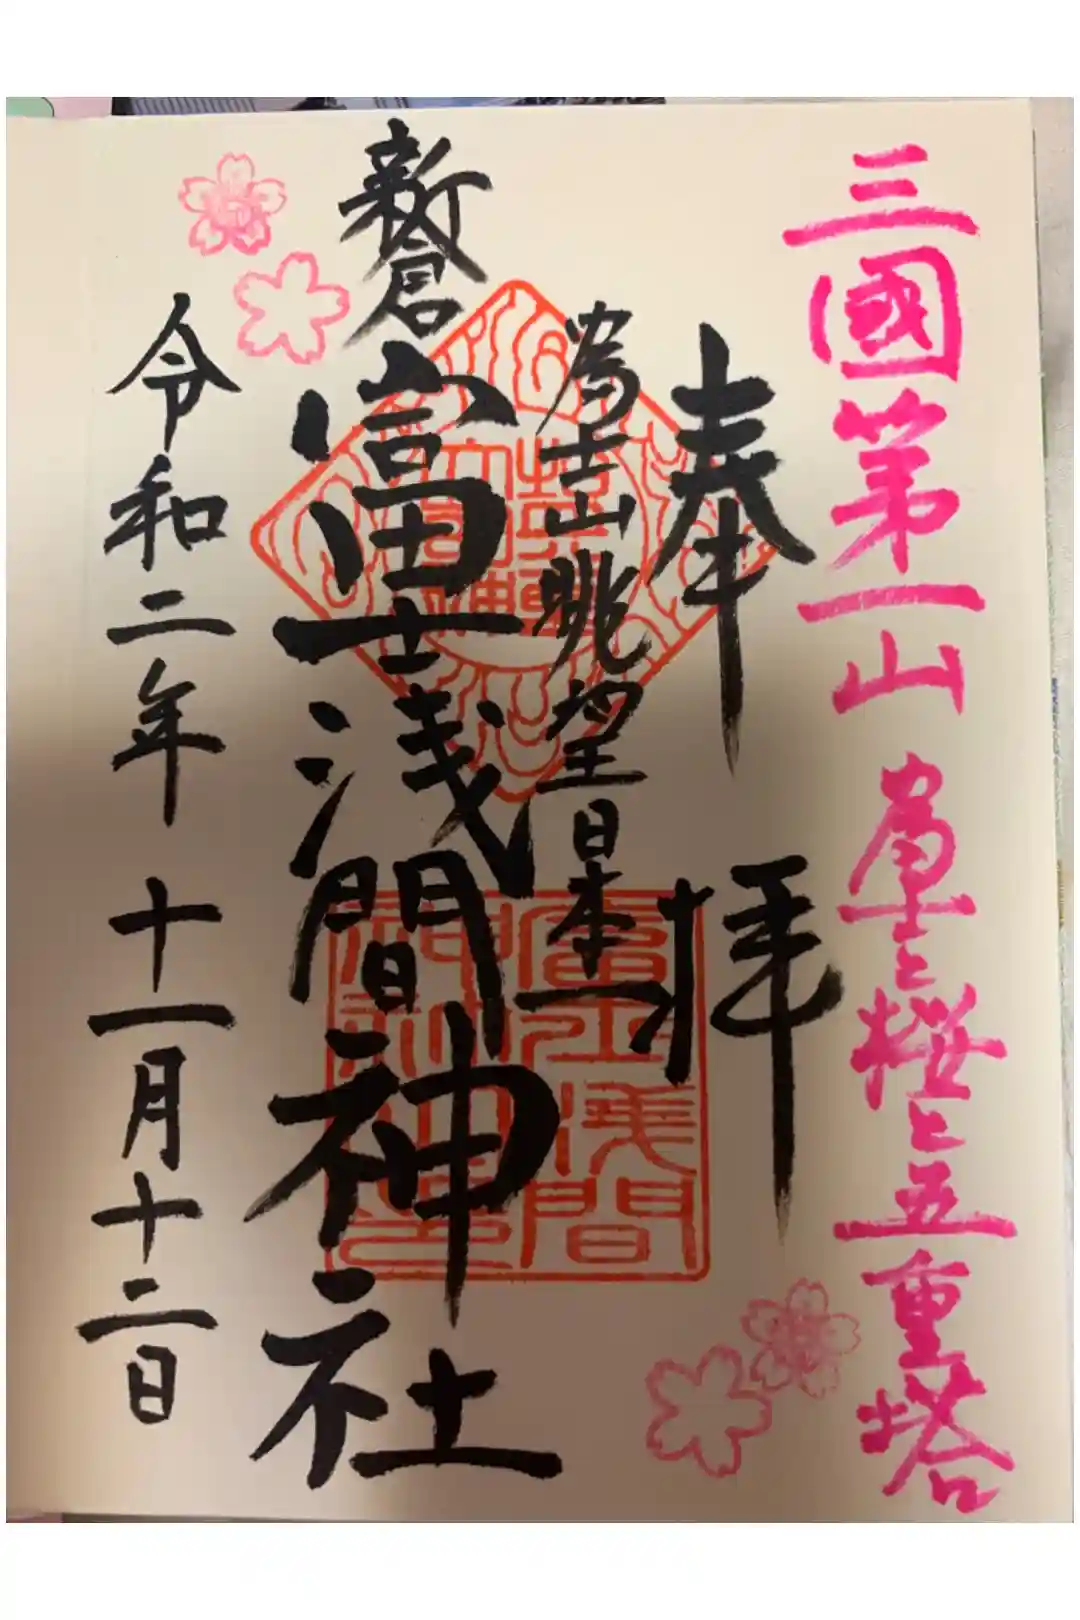 三國第一山 富士と桜と五重塔
奉拝
富士山眺望日本一
新倉富士浅間神社
令和二年 十一月十二日
富士浅間